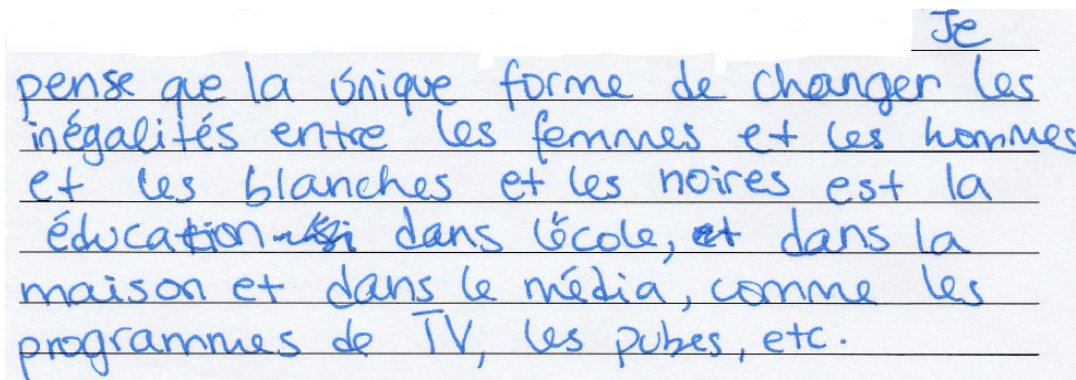 Je
pense que la únique forme de changer les
inégalités entre les femmes et les hommes
et les blanches et les noires est la
éducation dans l'école, et dans la
maison et dans le média, comme les
programmes de TV, les pubes, etc.